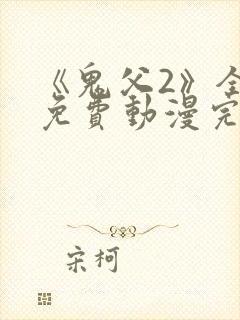 《鬼父2》全
免費動漫完
宋柯